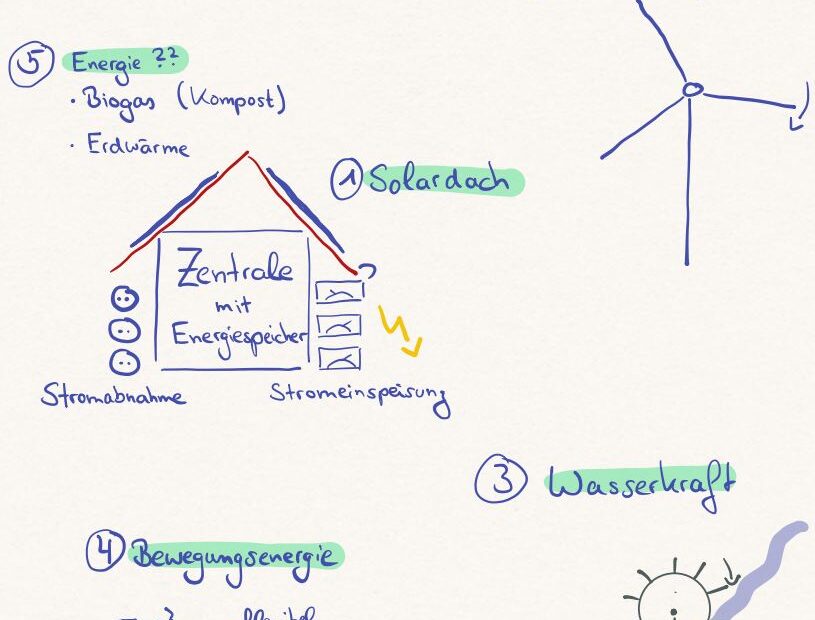 5 Energie ??
· Biogas (Kompost)
· Erdwärme
1 Solardach
Zentrale
mit
Energiespeicher
Stromabnahme
Stromeinspeisung
3 Wasserkraft
4 Bewegungsenergie